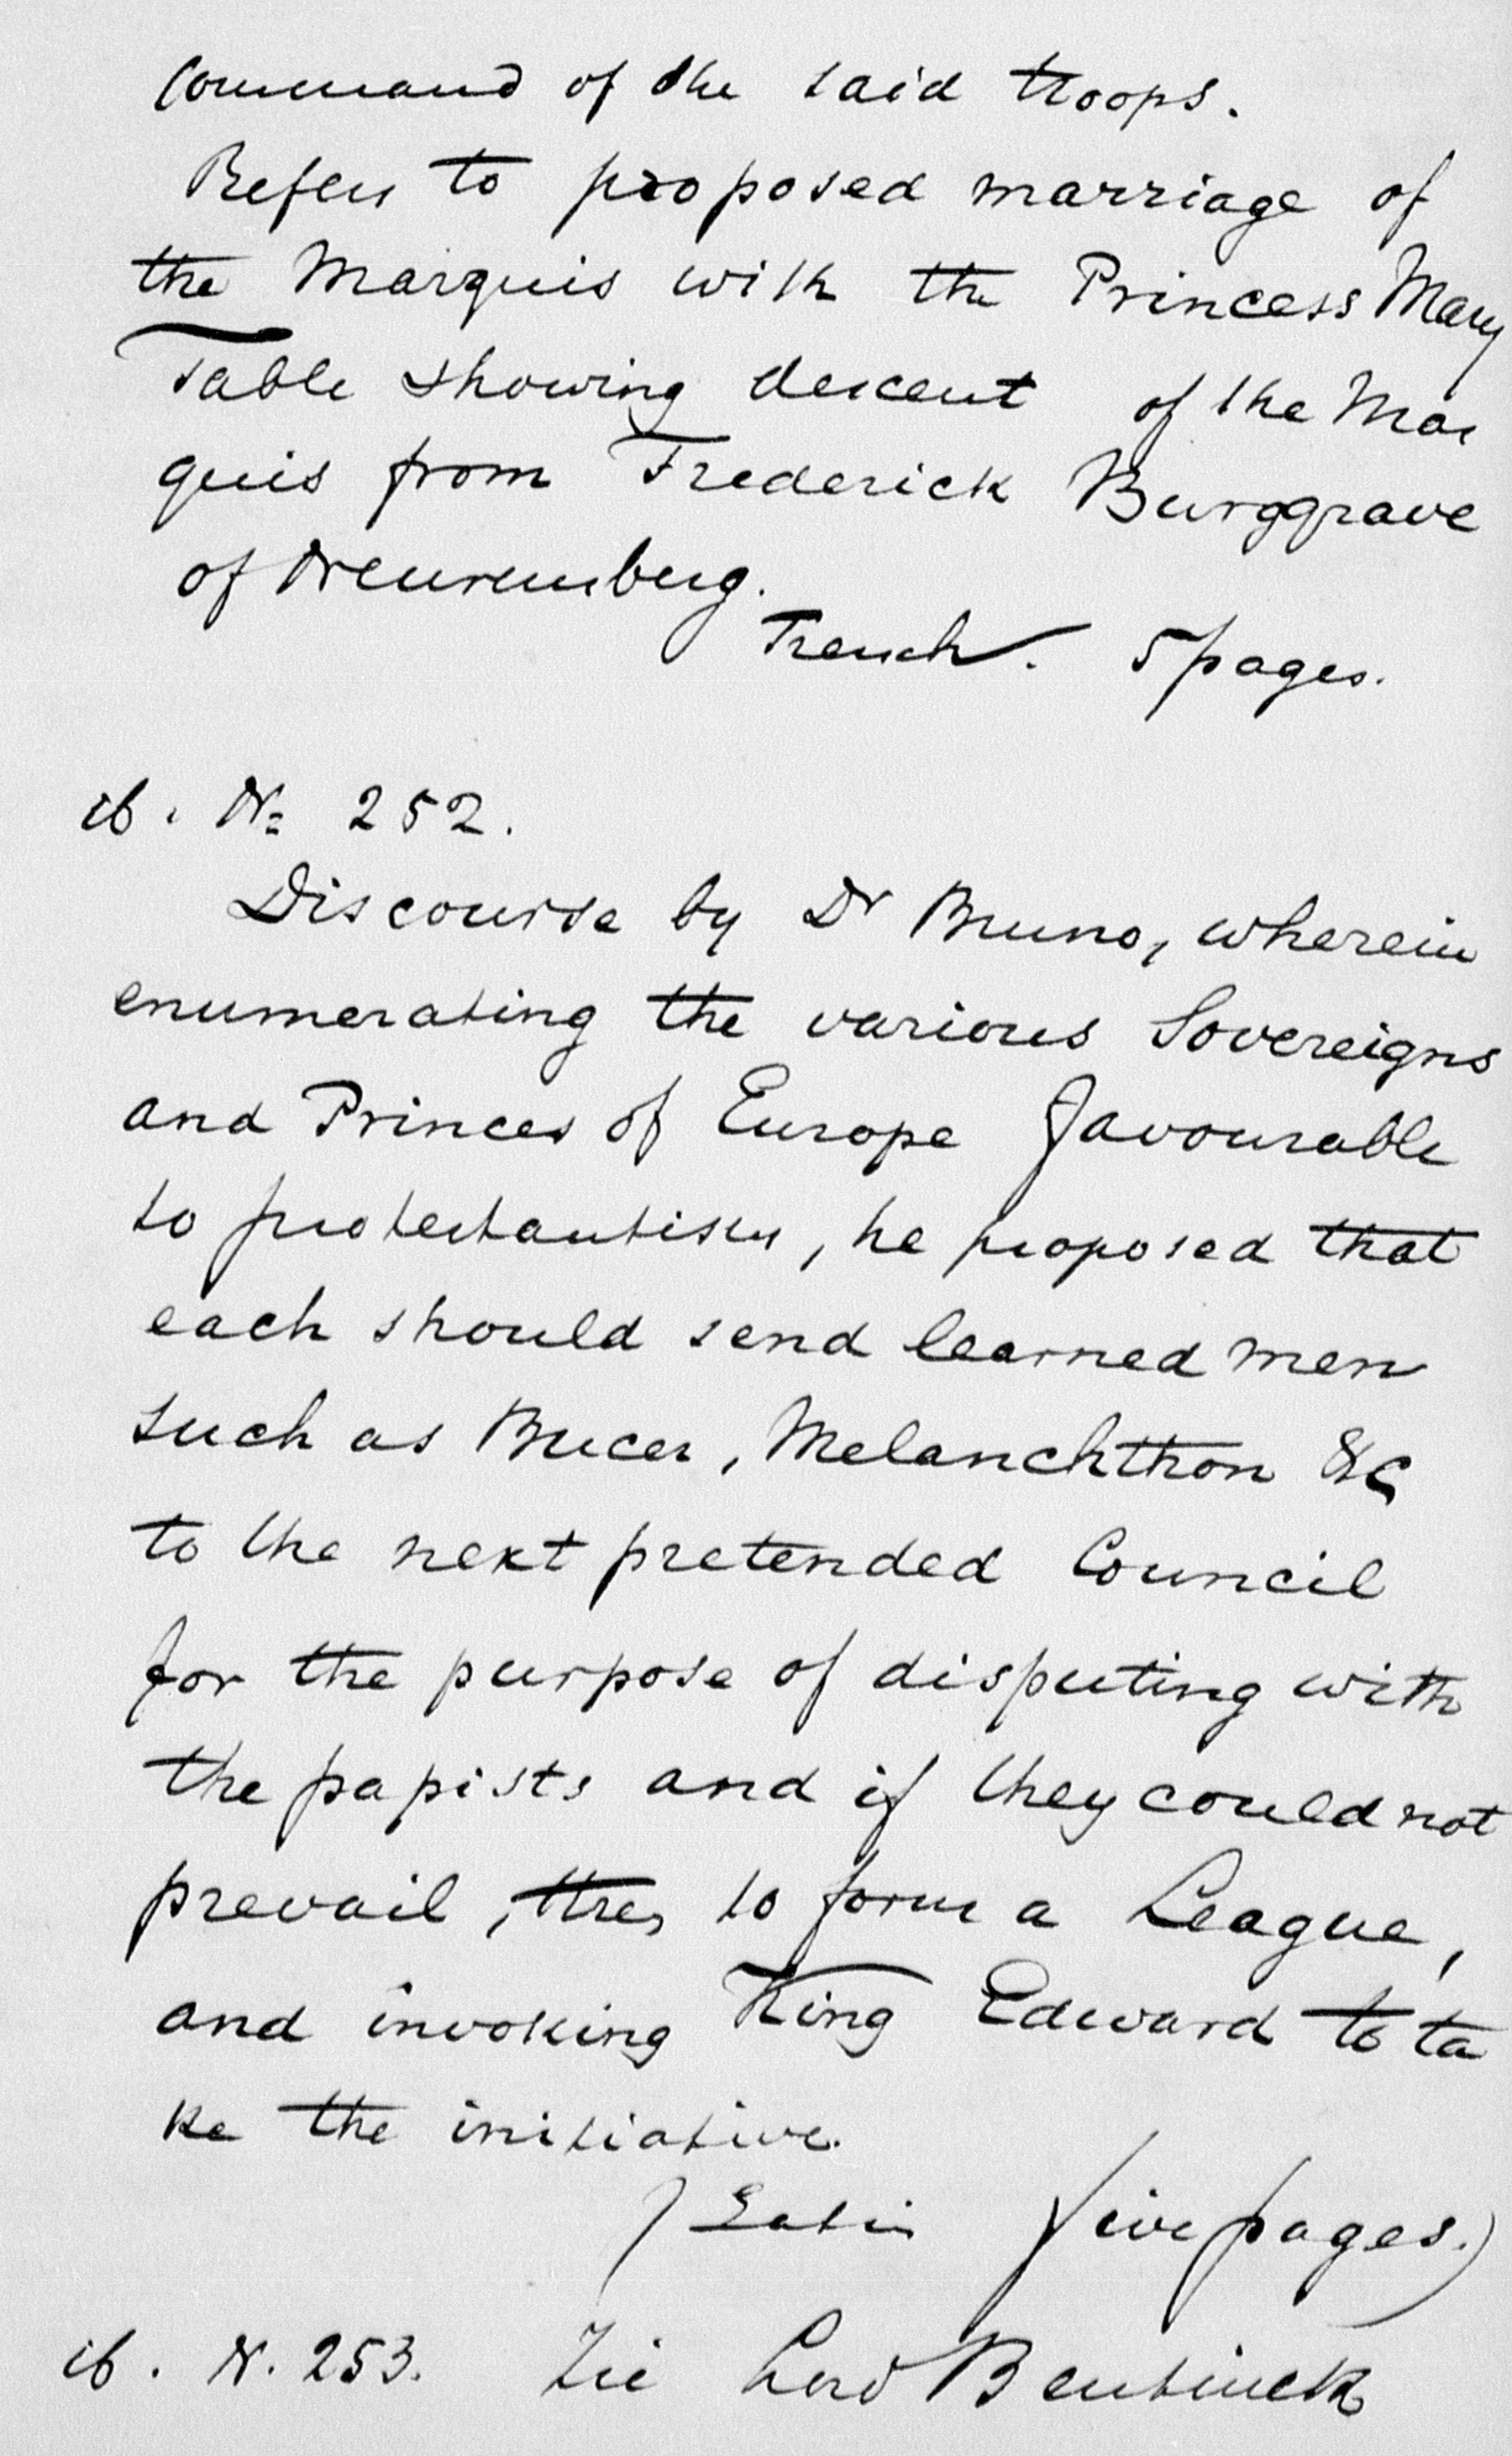 Command of the said troops.
Refers to proposed marriage of
the Marquis with the Princess Mary
Table showing descent of the Mar
quis from Frederick Burggrave
of Neuremberg.
French. 5 pages.
ib. No 252.
Discourse by Dr Bruno, wherein
enumerating the various Sovereigns
and Princes of Europe favourable
to protestantism, he proposed that
each should send learned men
such as Bucer, Melanchthon &c
to the next pretended Council
for the purpose of disputing with
the papists and if they could not
prevail, then to form a League,
and invoking King Edward to ta
ke the initiative.
(Latin five pages.)
ib. N. 253. Zie Lord Bentinck